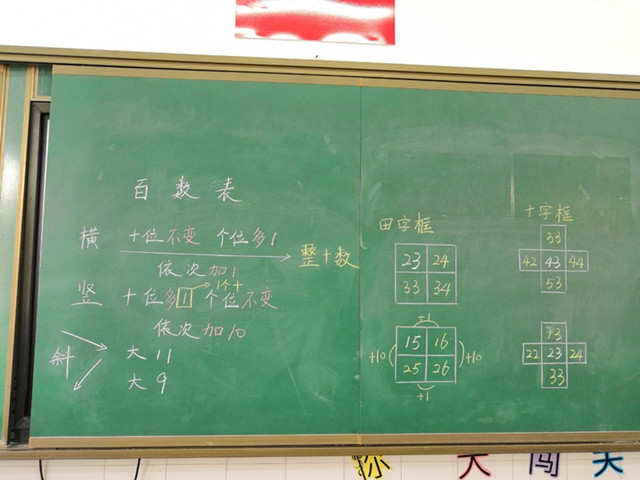 百数表
横 十位不变 个位多1
依次加1
整十数
竖 十位多1 个位不变
1个十
依次加10
斜 大11
大9
田字框
23 24
33 34
+1
15 16
+10 +10
25 26
+1
十字框
33
42 43 44
53
13
22 23 24
33
你 大 闯 关